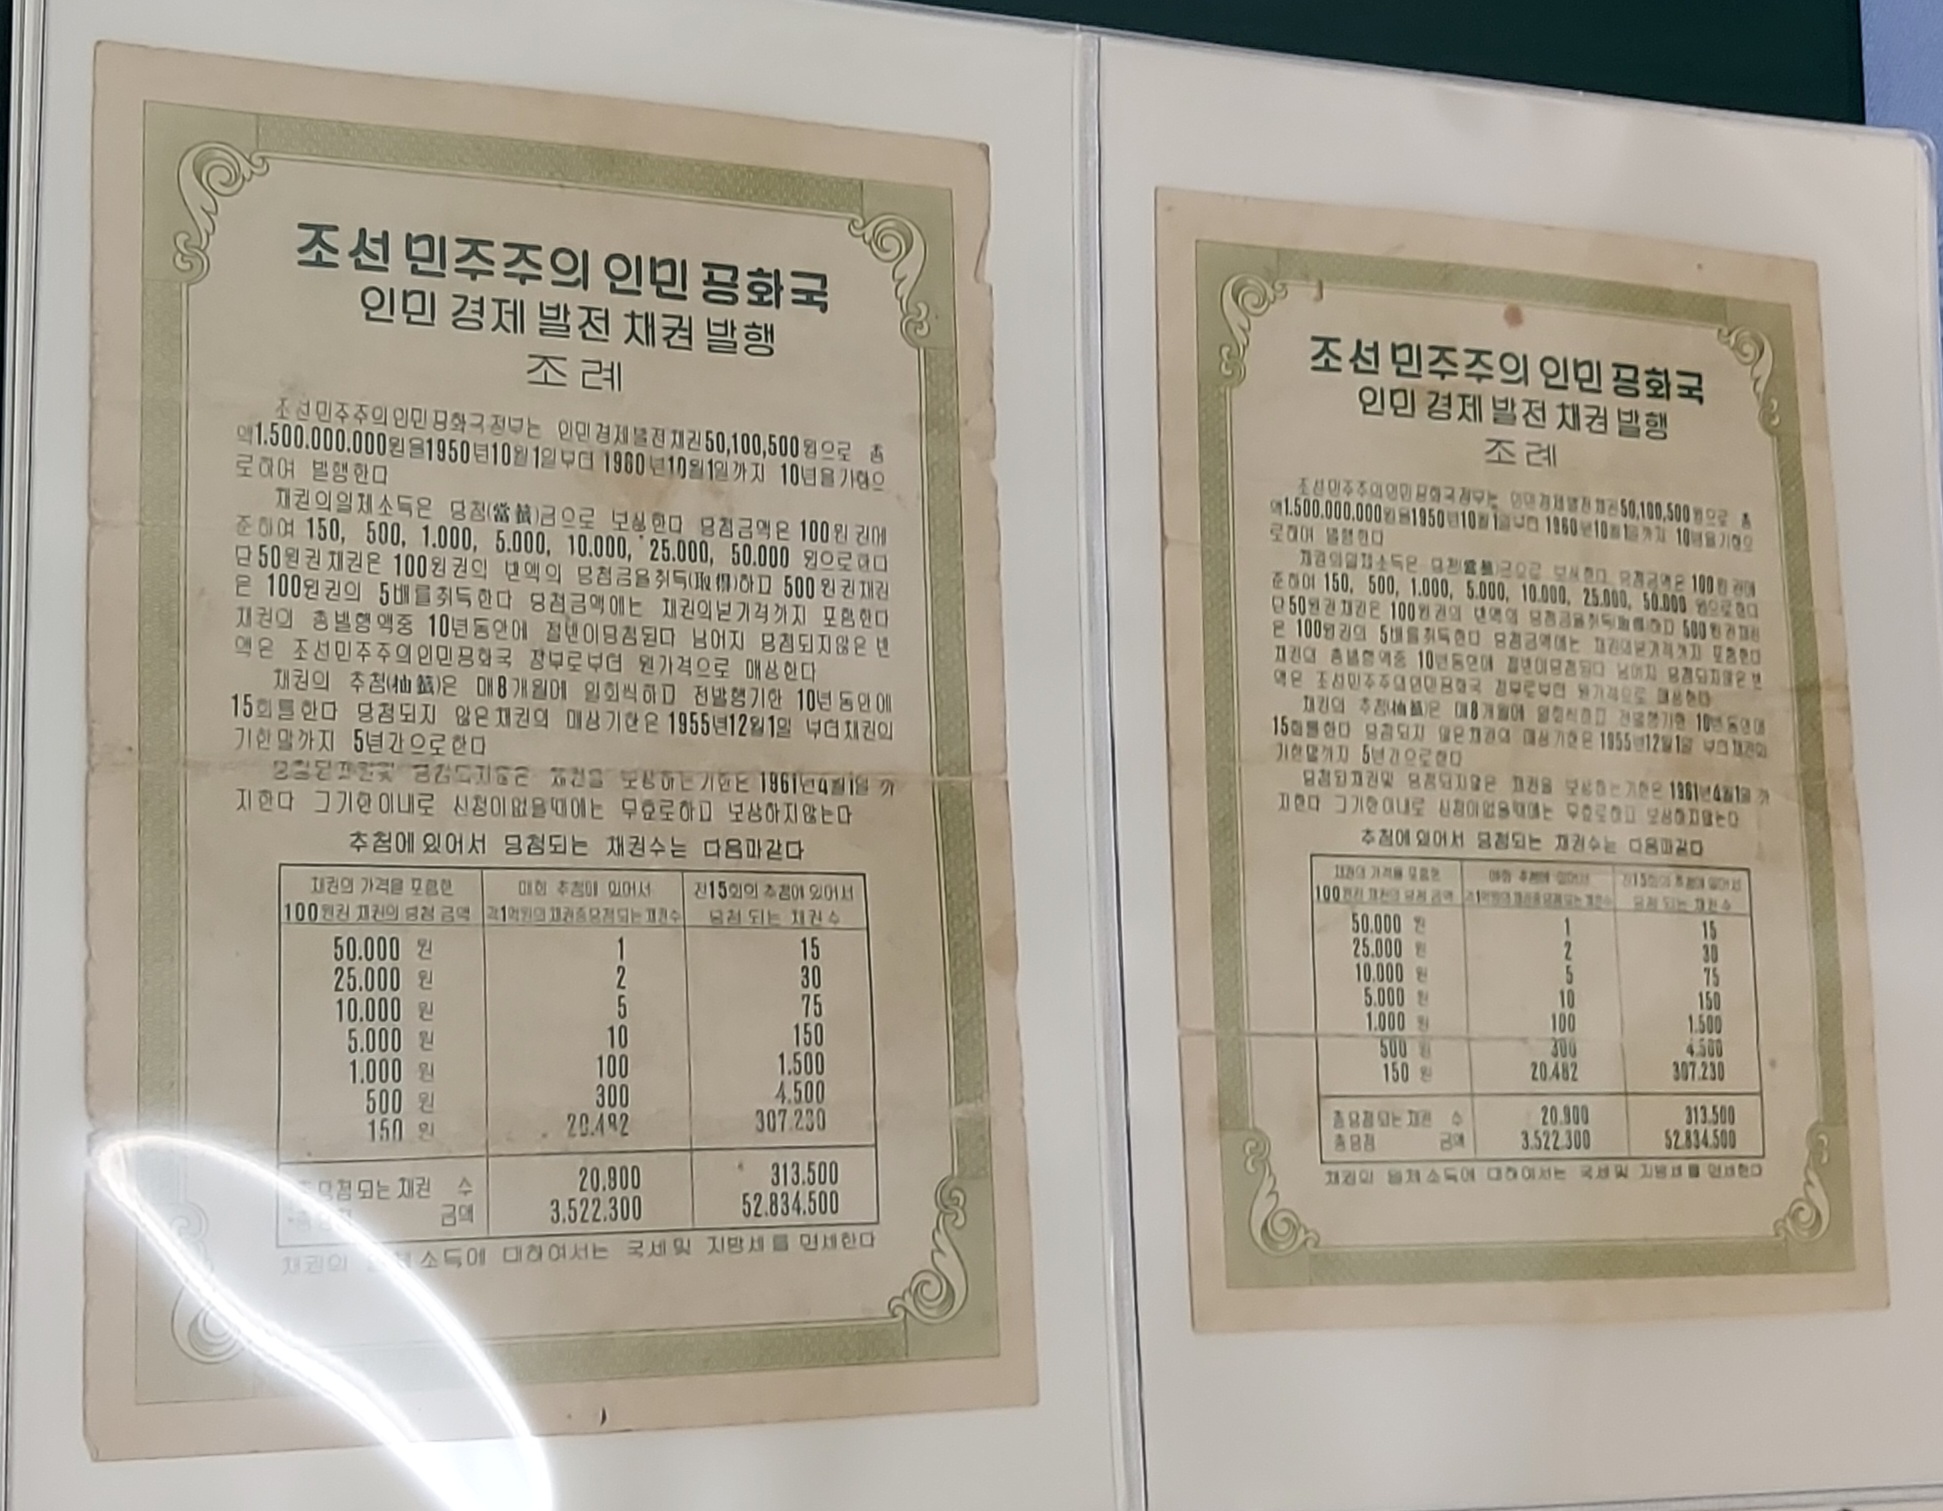 조선 민주주의 인민 공화국
인민 경제 발전 채권 발행
조례
조선민주주의인민공화국정부는 인민경제발전채권50,100,500원으로 총
액1.500.000.000원을1950년10월1일부터 1960년10월1일까지 10년을기한으
로하여 발행한다
채권의일체소득은 당첨(當籤)금으로 보상한다 당첨금액은 100원권에
준하여 150, 500, 1.000, 5.000, 10.000, 25.000, 50.000 원으로한다
단50원권채권은 100원권의 반액의 당첨금을취득(取得)하고 500원권채권
은 100원권의 5배를취득한다 당첨금액에는 채권의본가격까지 포함한다
채권의 총발행액중 10년동안에 절반이당첨된다 남어지 당첨되지않은반
액은 조선민주주의인민공화국 정부로부터 원가격으로 매상한다
채권의 추첨(抽籤)은 매8개월에 일회씩하고 전발행기한 10년동안에
15회를한다 당첨되지 않은채권의 매상기한은 1955년12월1일 부터채권의
기한말까지 5년간으로한다
당첨된채권및 당첨되지않은 채권을 보상하는기한은 1961년4월1일 까
지한다 그기한이내로 신청이없을때에는 무효로하고 보상하지않는다
추첨에있어서 당첨되는 채권수는 다음과같다
채권의 가격을 포함한 매회 추첨에 있어서 전15회의 추첨에 있어서
100원권 채권의 당첨 금액 각1억원의채권중당첨되는채권수 당첨 되는 채권 수
50.000 원 1 15
25.000 원 2 30
10.000 원 5 75
5.000 원 10 150
1.000 원 100 1.500
500 원 300 4.500
150 원 20.482 307.230
총당첨되는채권 수 20.900 313.500
금액 3.522.300 52.834.500
채권의 일체소득에 대하여서는 국세및 지방세를 면세한다
조선 민주주의 인민 공화국
인민 경제 발전 채권 발행
조례
조선민주주의인민공화국정부는 인민경제발전채권50,100,500원으로 총
액1.500.000.000원을1950년10월1일부터 1960년10월1일까지 10년을기한으
로하여 발행한다
채권의일체소득은 당첨(當籤)금으로 보상한다 당첨금액은 100원권에
준하여 150, 500, 1.000, 5.000, 10.000, 25.000, 50.000 원으로한다
단50원권채권은 100원권의 반액의 당첨금을취득(取得)하고 500원권채권
은 100원권의 5배를취득한다 당첨금액에는 채권의본가격까지 포함한다
채권의 총발행액중 10년동안에 절반이당첨된다 남어지 당첨되지않은반
액은 조선민주주의인민공화국 정부로부터 원가격으로 매상한다
채권의 추첨(抽籤)은 매8개월에 일회씩하고 전발행기한 10년동안에
15회를한다 당첨되지 않은채권의 매상기한은 1955년12월1일 부터채권의
기한말까지 5년간으로한다
당첨된채권및 당첨되지않은 채권을 보상하는기한은 1961년4월1일 까
지한다 그기한이내로 신청이없을때에는 무효로하고 보상하지않는다
추첨에있어서 당첨되는 채권수는 다음과같다
채권의 가격을 포함한 매회 추첨에 있어서 전15회의 추첨에 있어서
100원권 채권의 당첨 금액 각1억원의채권중당첨되는채권수 당첨 되는 채권 수
50.000 원 1 15
25.000 원 2 30
10.000 원 5 75
5.000 원 10 150
1.000 원 100 1.500
500 원 300 4.500
150 원 20.482 307.230
총당첨되는채권 수 20.900 313.500
총당첨 금액 3.522.300 52.834.500
채권의 일체소득에 대하여서는 국세및 지방세를 면세한다